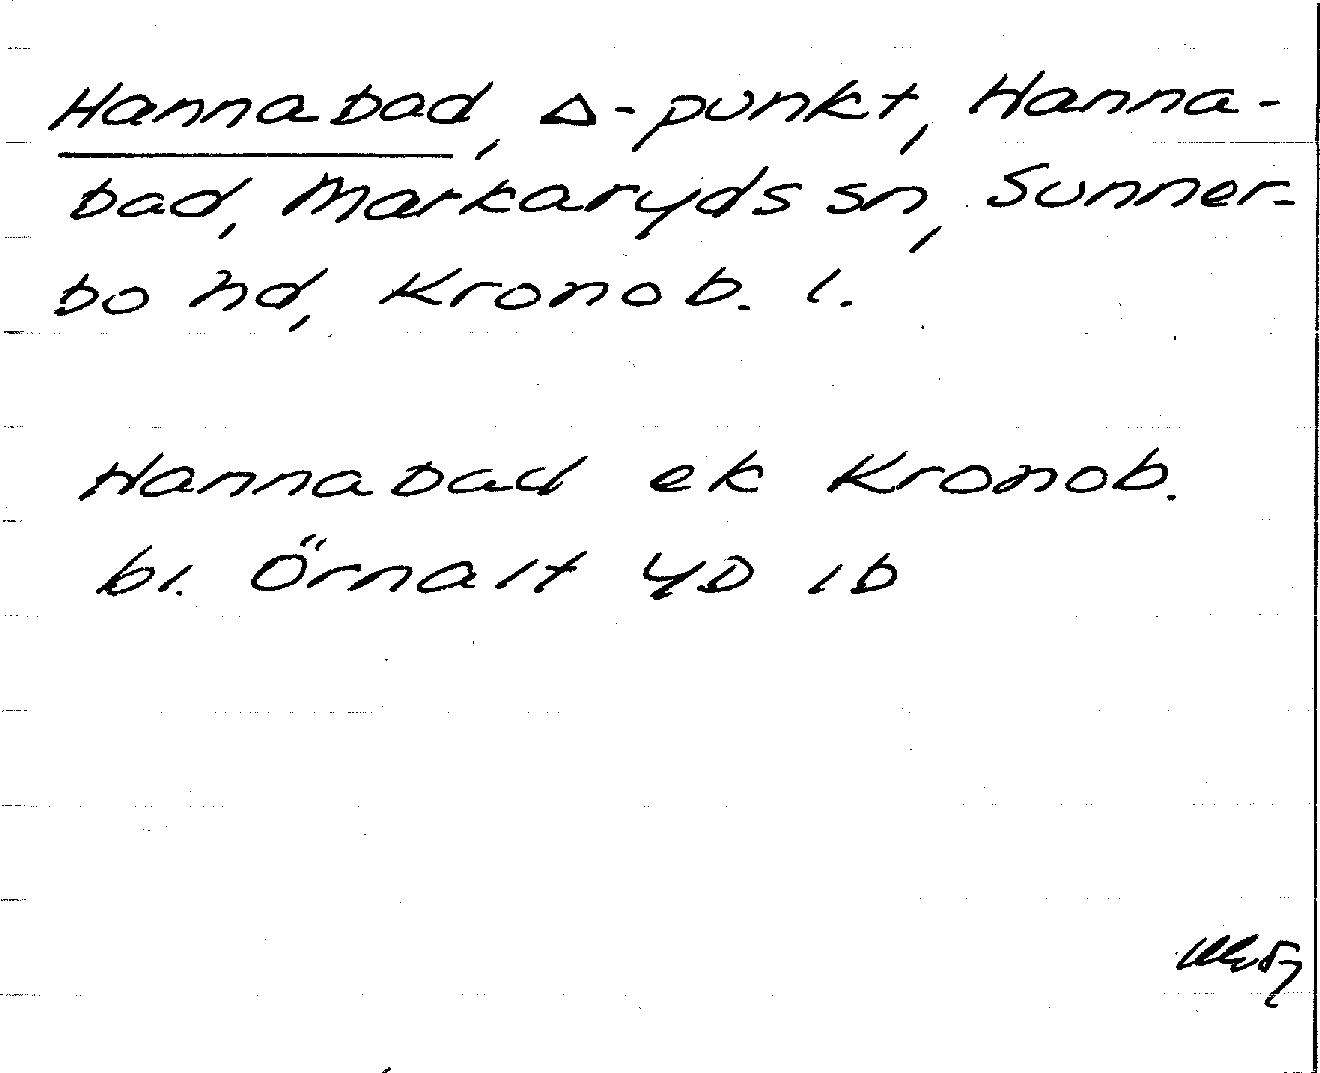 Hannabad, Δ-punkt, Hanna-
bad, Markaryds sn, Sunner-
bo hd, Kronob. l.
Hannabad ek Kronob.
bl. Örnalt 4D 1b